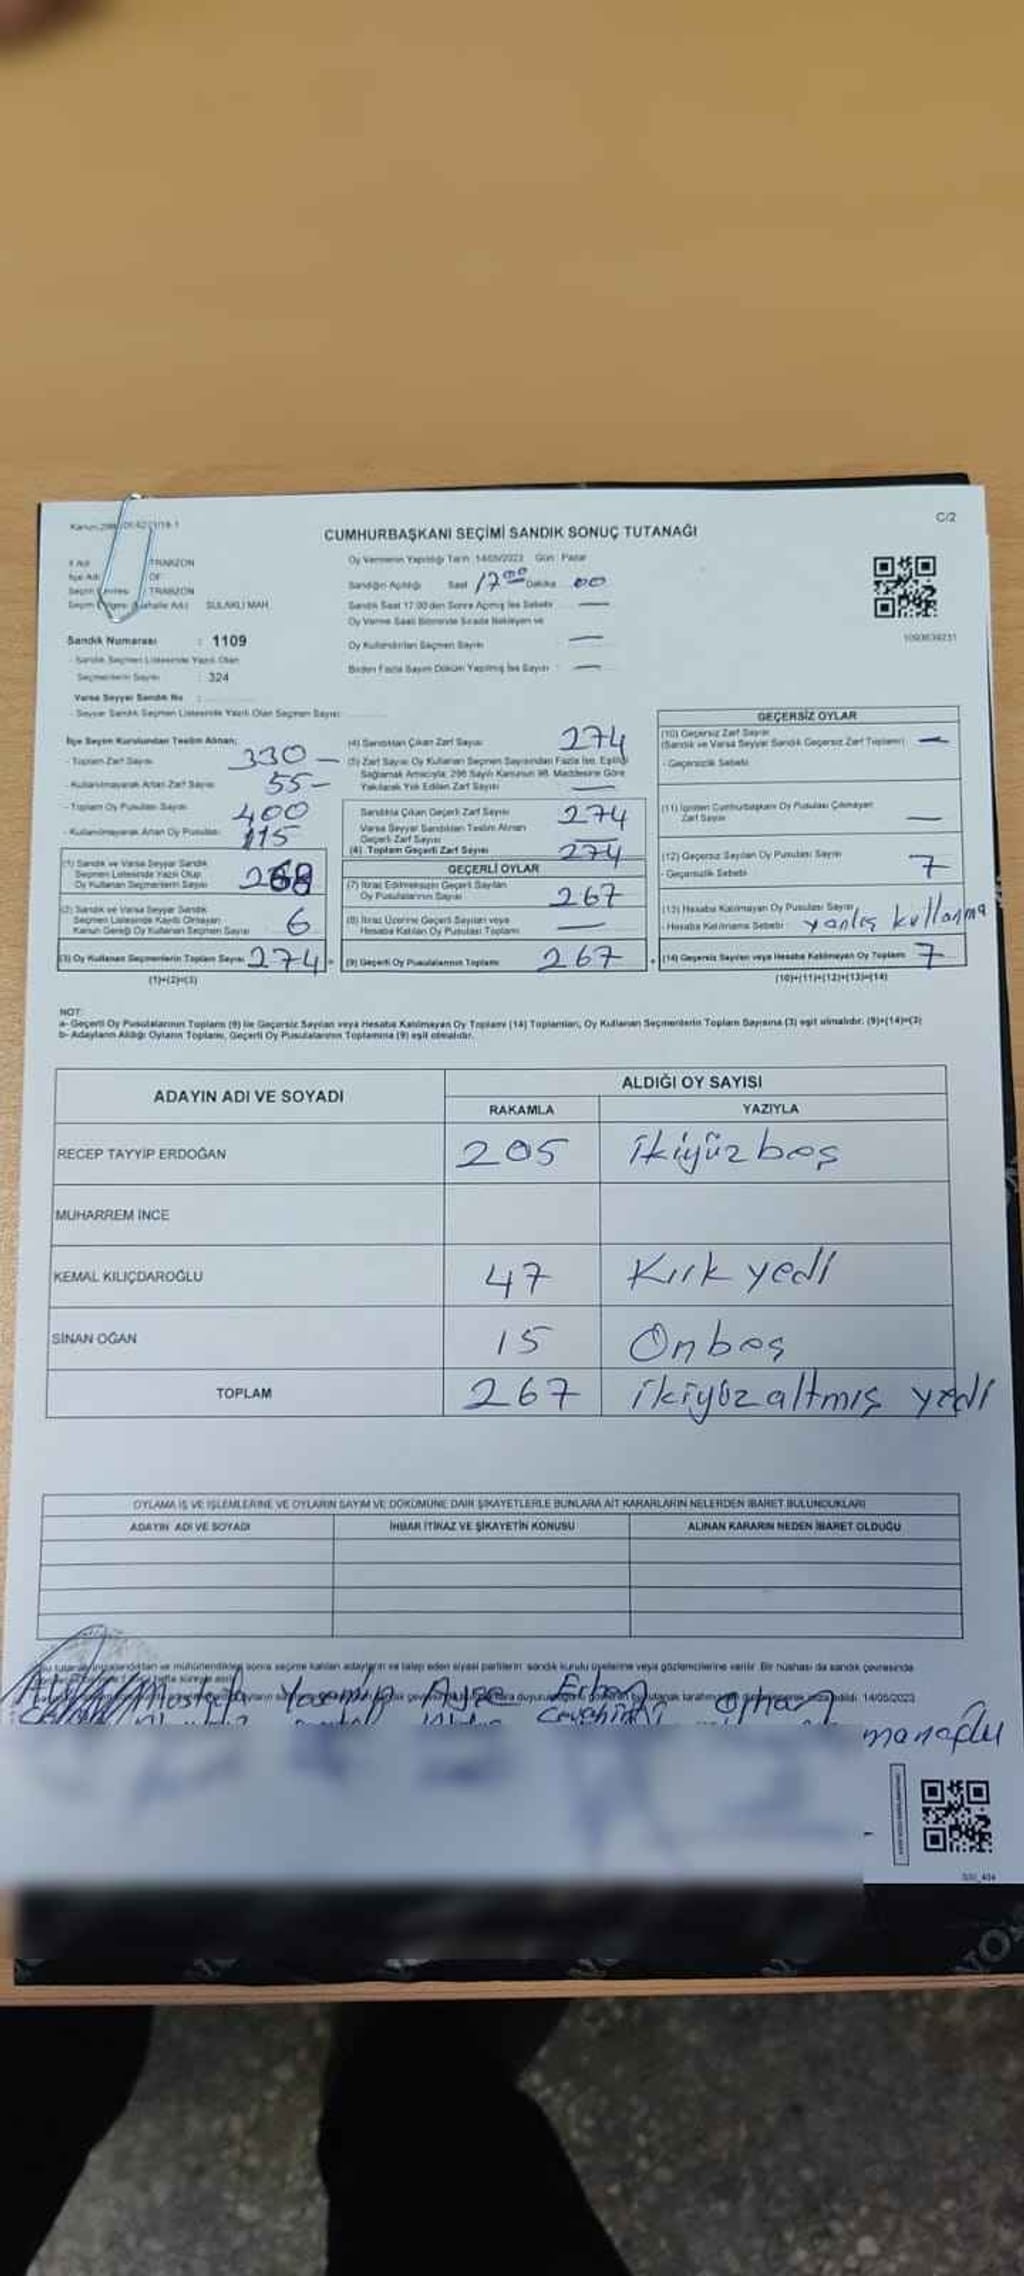 C/2
CUMHURBAŞKANI SEÇİMİ SANDIK SONUÇ TUTANAĞI
İl Adı : TRABZON
İlçe Adı : OF
Seçim Çevresi : TRABZON
Seçim Bölgesi (Mahalle Adı) : SULAKLI MAH.
Sandık Numarası : 1109
- Sandık Seçmen Listesinde Yazılı Olan
Seçmenlerin Sayısı : 324
Varsa Seyyar Sandık No :
- Seyyar Sandık Seçmen Listesinde Yazılı Olan Seçmen Sayısı:
Oy Vermenin Yapıldığı Tarih: 14/05/2023 Gün: Pazar
Sandığın Açıldığı Saat 17 00 Dakika 00
Sandık Saat 17.00'den Sonra Açılmış İse Sebebi : —
Oy Verme Saati Bitiminde Sırada Bekleyen ve
Oy Kullandırılan Seçmen Sayısı : —
Birden Fazla Sayım Döküm Yapılmış İse Sayısı : —
İlçe Seçim Kurulundan Teslim Alınan;
- Toplam Zarf Sayısı 330 —
- Kullanılmayarak Artan Zarf Sayısı 55 —
- Toplam Oy Pusulası Sayısı 400
- Kullanılmayarak Artan Oy Pusulası 115
(1) Sandık ve Varsa Seyyar Sandık
Seçmen Listesinde Yazılı Olup
Oy Kullanan Seçmenlerin Sayısı 268
(2) Sandık ve Varsa Seyyar Sandık
Seçmen Listesinde Kayıtlı Olmayan
Kanun Gereği Oy Kullanan Seçmen Sayısı 6
(3) Oy Kullanan Seçmenlerin Toplam Sayısı 274
(1)+(2)=(3)
(4) Sandıktan Çıkan Zarf Sayısı 274
(5) Zarf Sayısı Oy Kullanan Seçmen Sayısından Fazla İse, Eşitliği
Sağlamak Amacıyla; 298 Sayılı Kanunun 98. Maddesine Göre
Yakılarak Yok Edilen Zarf Sayısı —
Sandıkta Çıkan Geçerli Zarf Sayısı 274
Varsa Seyyar Sandıktan Teslim Alınan
Geçerli Zarf Sayısı —
(6) Toplam Geçerli Zarf Sayısı 274
GEÇERLİ OYLAR
(7) İtiraz Edilmeksizin Geçerli Sayılan
Oy Pusulalarının Sayısı 267
(8) İtiraz Üzerine Geçerli Sayılan veya
Hesaba Katılan Oy Pusulası Toplamı —
(9) Geçerli Oy Pusulalarının Toplamı 267
GEÇERSİZ OYLAR
(10) Geçersiz Zarf Sayısı
(Sandık ve Varsa Seyyar Sandık Geçersiz Zarf Toplamı) —
- Geçersizlik Sebebi
(11) İçinden Cumhurbaşkanı Oy Pusulası Çıkmayan
Zarf Sayısı —
(12) Geçersiz Sayılan Oy Pusulası Sayısı 7
- Geçersizlik Sebebi
(13) Hesaba Katılmayan Oy Pusulası Sayısı
- Hesaba Katılmama Sebebi yanlış kullanma
(14) Geçersiz Sayılan veya Hesaba Katılmayan Oy Toplamı 7
(10)+(11)+(12)+(13)=(14)
NOT:
a- Geçerli Oy Pusulalarının Toplamı (9) ile Geçersiz Sayılan veya Hesaba Katılmayan Oy Toplamı (14) Toplamları, Oy Kullanan Seçmenlerin Toplam Sayısına (3) eşit olmalıdır. (9)+(14)=(3)
b- Adayların Aldığı Oyların Toplamı, Geçerli Oy Pusulalarının Toplamına (9) eşit olmalıdır.
ADAYIN ADI VE SOYADI
ALDIĞI OY SAYISI
RAKAMLA YAZIYLA
RECEP TAYYİP ERDOĞAN 205 ikiyüz beş
MUHARREM İNCE
KEMAL KILIÇDAROĞLU 47 Kırk yedi
SİNAN OĞAN 15 Onbeş
TOPLAM 267 ikiyüz altmış yedi
OYLAMA İŞ VE İŞLEMLERİNE VE OYLARIN SAYIM VE DÖKÜMÜNE DAİR ŞİKAYETLERLE BUNLARA AİT KARARLARIN NELERDEN İBARET BULUNDUKLARI
ADAYIN ADI VE SOYADI İHBAR İTİRAZ VE ŞİKAYETİN KONUSU ALINAN KARARIN NEDEN İBARET OLDUĞU
sonra seçime katılan adayların ve talep eden siyasi partilerin sandık kurulu üyelerine veya gözlemcilerine verilir. Bir nüshası da sandık çevresinde
14/05/2023
Mustafa Yasemin Ayşe Erhan Orhan